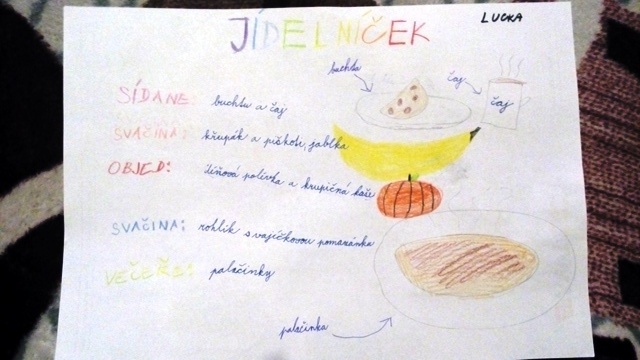 LUCKA
JÍDELNÍČEK
buchta
čaj
čaj
SÍDANE: buchta a čaj
SVAČINA: křupák a piškote, jablka
OBJED: díňová polívka a krupičná kaše
SVAČINA: rohlík s vajíčkovou pomaránka
VEČEŘE: palačinky
palačinka